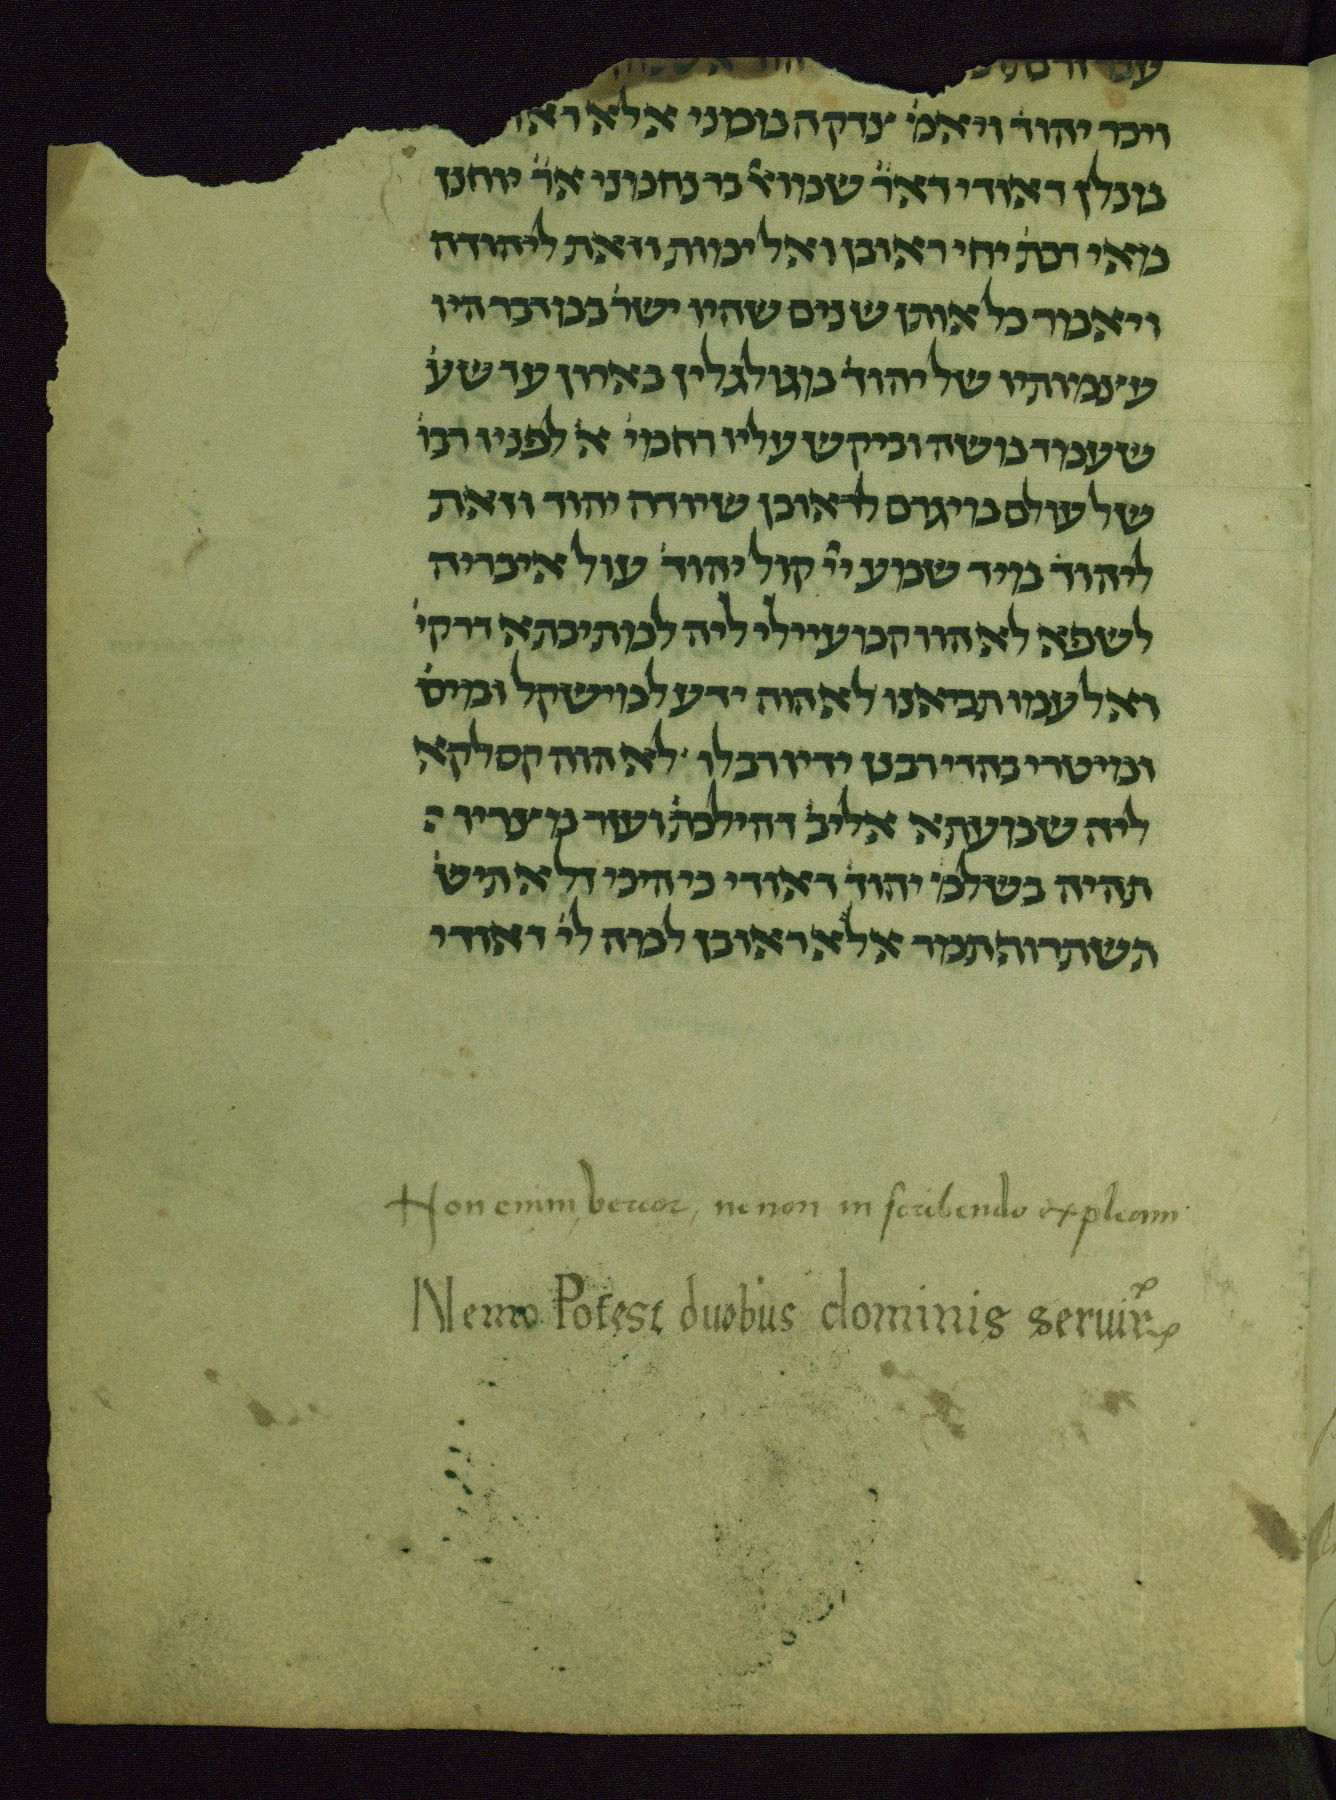 ויכר יהוד׳ ויאמ׳ צדקה ממני אלא ראו
מנלן דאודי דא״ר שמוא׳ בר נחמני א״ר יוחנן
מאי דכת׳ יחי ראובן ואל ימות וזאת ליהודה
ויאמר כל אותן שנים שהיו ישר׳ במדבר היו
עצמותיו של יהוד׳ מגולגלין בארון עד שע׳
שעמד משה וביקש עליו רחמי׳ א׳ לפניו רבו׳
של עולם מי גרם לראובן שיודה יהוד׳ וזאת
ליהוד׳ מיד שמע יי׳ קול יהוד׳ עול איבריה
לשפא לא הוו קמעיילי ליה למתיבתא דרקי׳
ואל עמו תביאנו לא הוה ידע למישקל ומיס׳
ומיטרי בהדי רבנן ידיו רב לו׳ לא הוה קסלקא
ליה שמעתא אליב׳ דהילכת׳ ועזר מצריו
תהיה בשלמ׳ יהוד׳ דאודי כי היכי דלא תיש׳
תשתרוה תמר אלא ראובן למה לי׳ דאודי
Non enim vereor, ne non in scribendo expleam
Nemo Potest duobus dominis servir